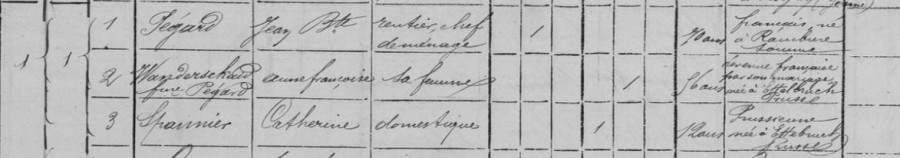 1 1 1 Pégard Jean Bte rentier, chef de ménage 1 70 ans français, né à Rambure Somme
2 Wanderschaud fme Pégard anne françoise sa femme 1 56 ans devenue française par son mariage née à Ettelbruch Prusse
3 Spannier Catherine domestique 1 12 ans Prussienne née à Ettebruch Prusse